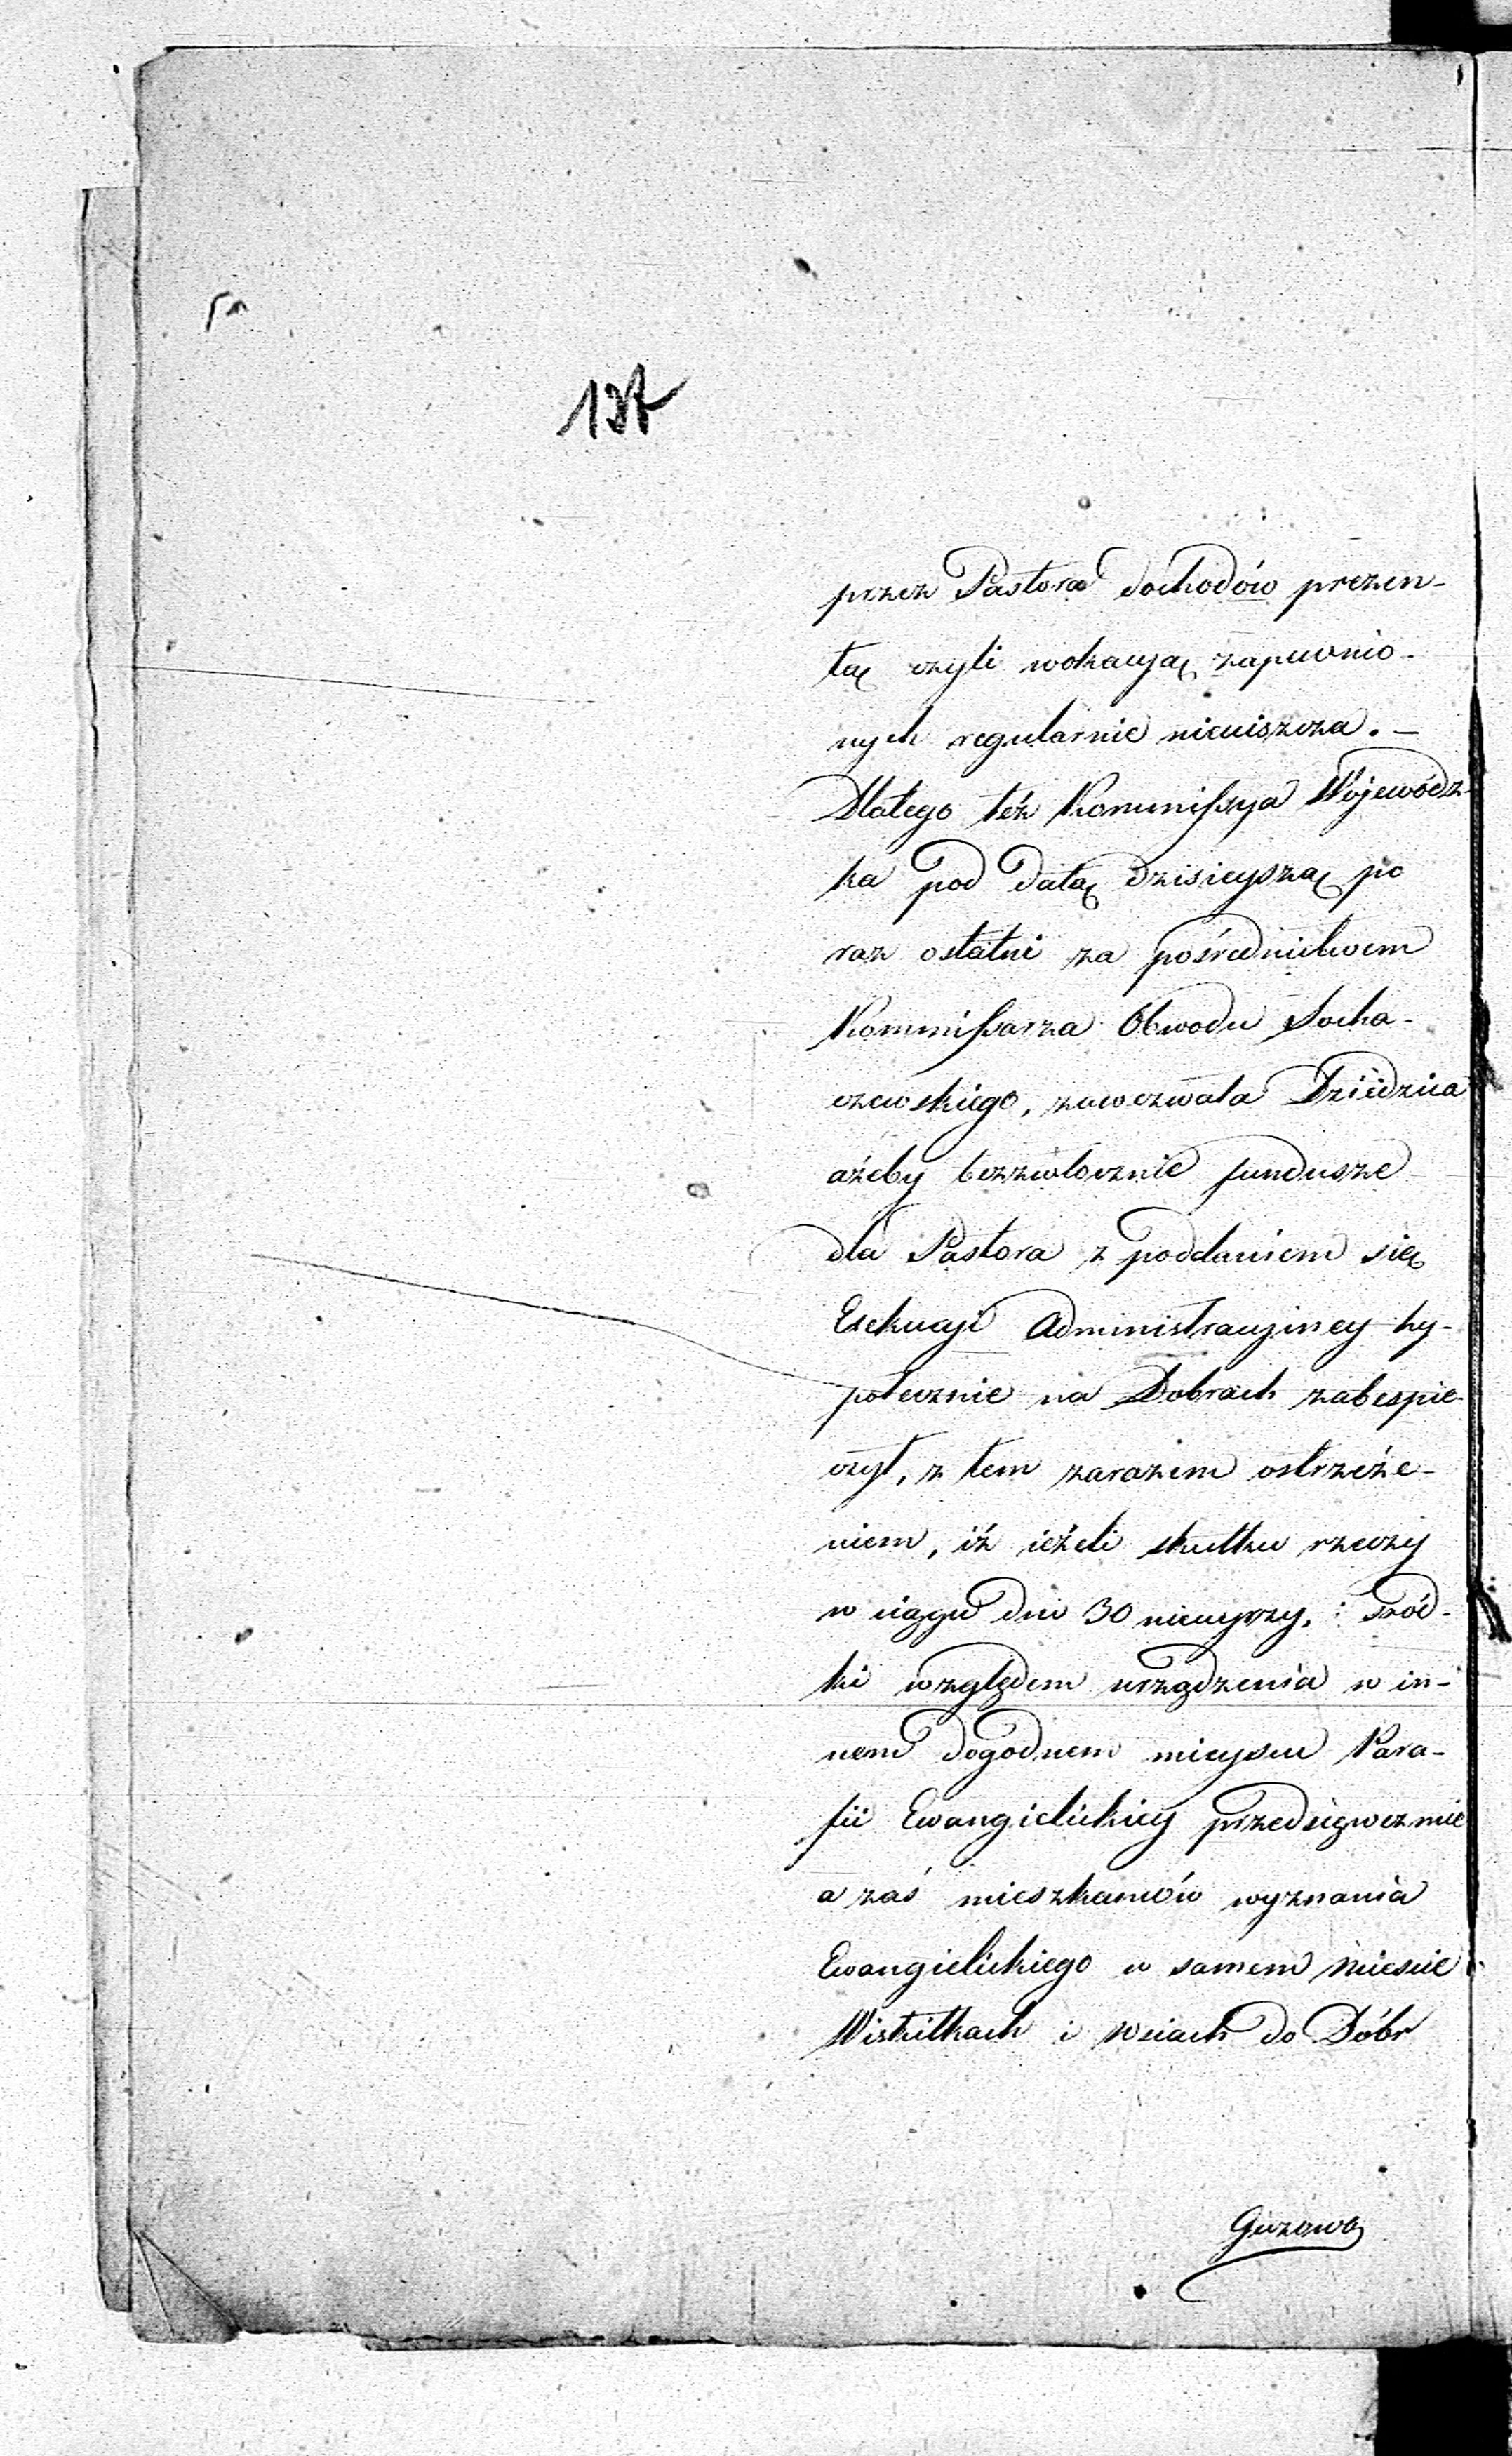 137
przez Pastora dochodów prezen-
tą czyli wokacyą zapewnio-
nych regularnie nieuiszcza. –
Dlatego też Kommissya Wojewódz-
ka pod datą dzisieyszą po
raz ostatni za pośrednictwem
Kommissarza Obwodu Socha-
czewskiego, zawezwała Dziedzica
ażeby bezzwłocznie fundusze
dla Pastora z poddaniem się
Exekucyi Administracyiney hy-
potecznie na Dobrach zabespie-
czył, z tem zarazem ostrzeże-
niem, iż ieżeli skutku rzeczy
w ciągu dni 30 nieuyrzy, : szód-
ki względem urządzenia w in-
nem dogodnem mieyscu Para-
fii Ewangielickiey przedsięweźmie
a zaś mieszkańców wyznania
Ewangielickiego w samem mieście
Wiskitkach i wsiach do Dóbr
Guzowa